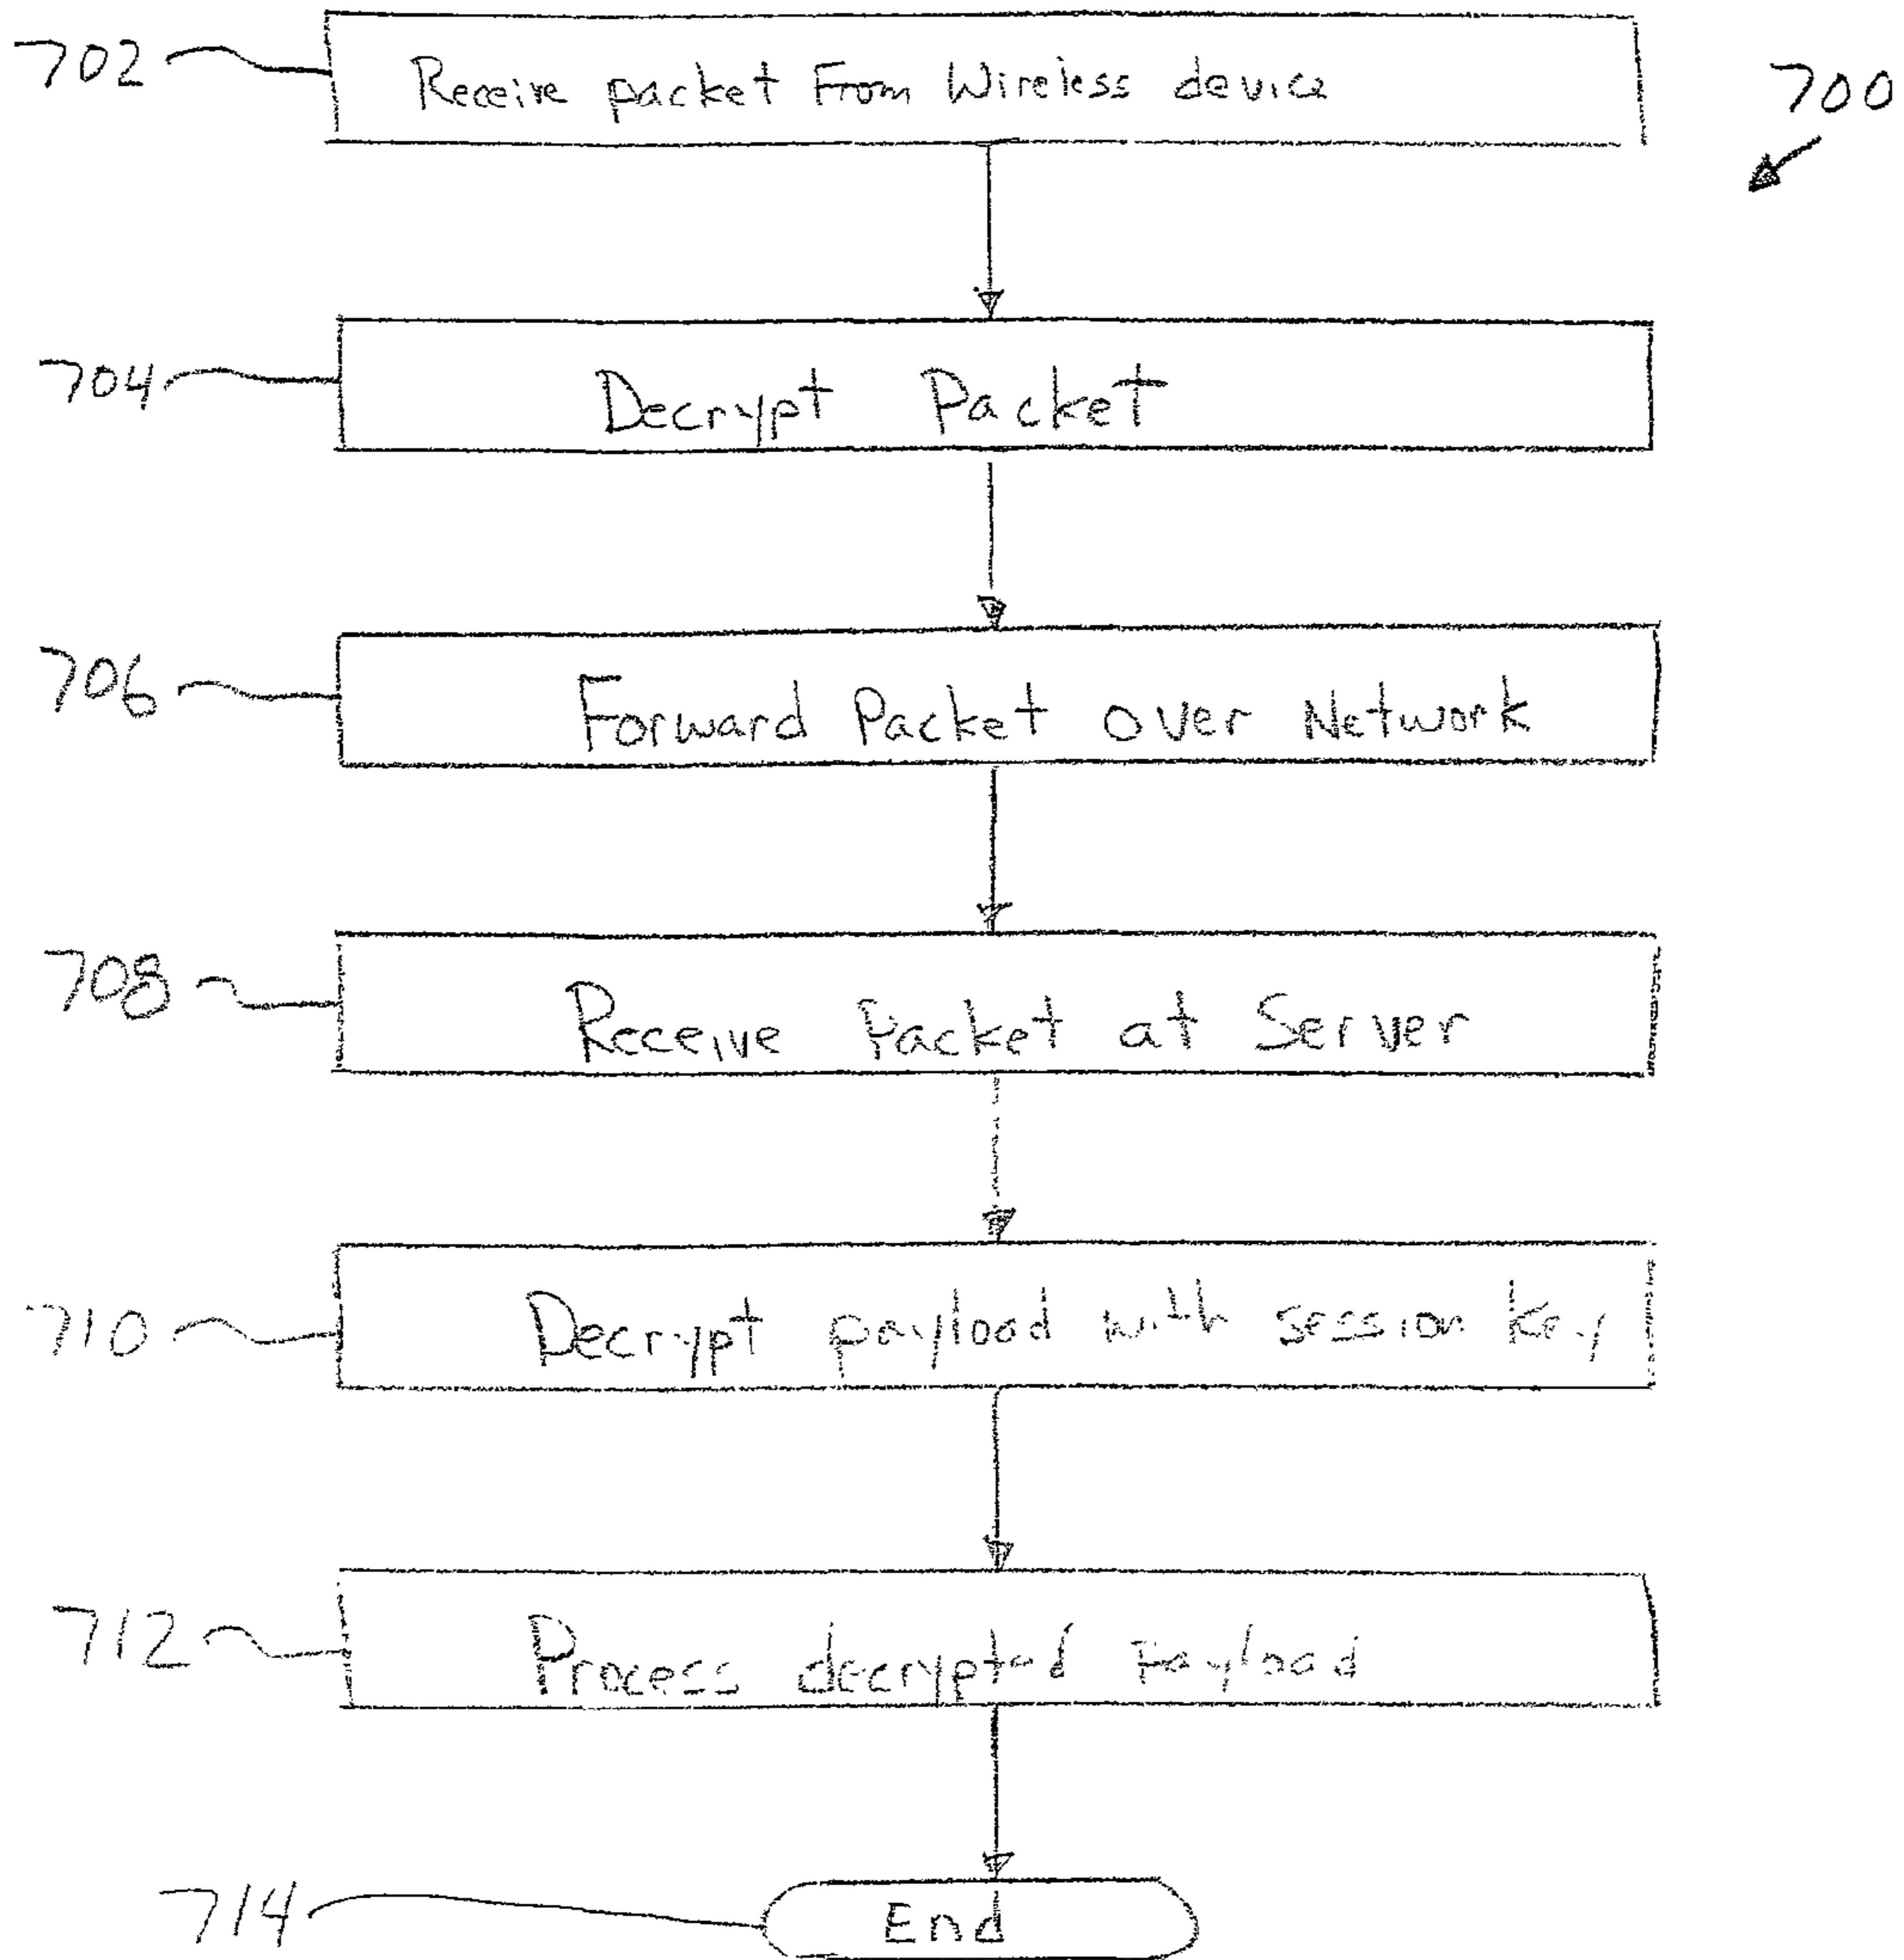 702
Receive packet From Wireless device
700
704
Decrypt Packet
706
Forward Packet over Network
708
Receive Packet at Server
710
Decrypt payload with session key
712
Process decrypted payload
714
End